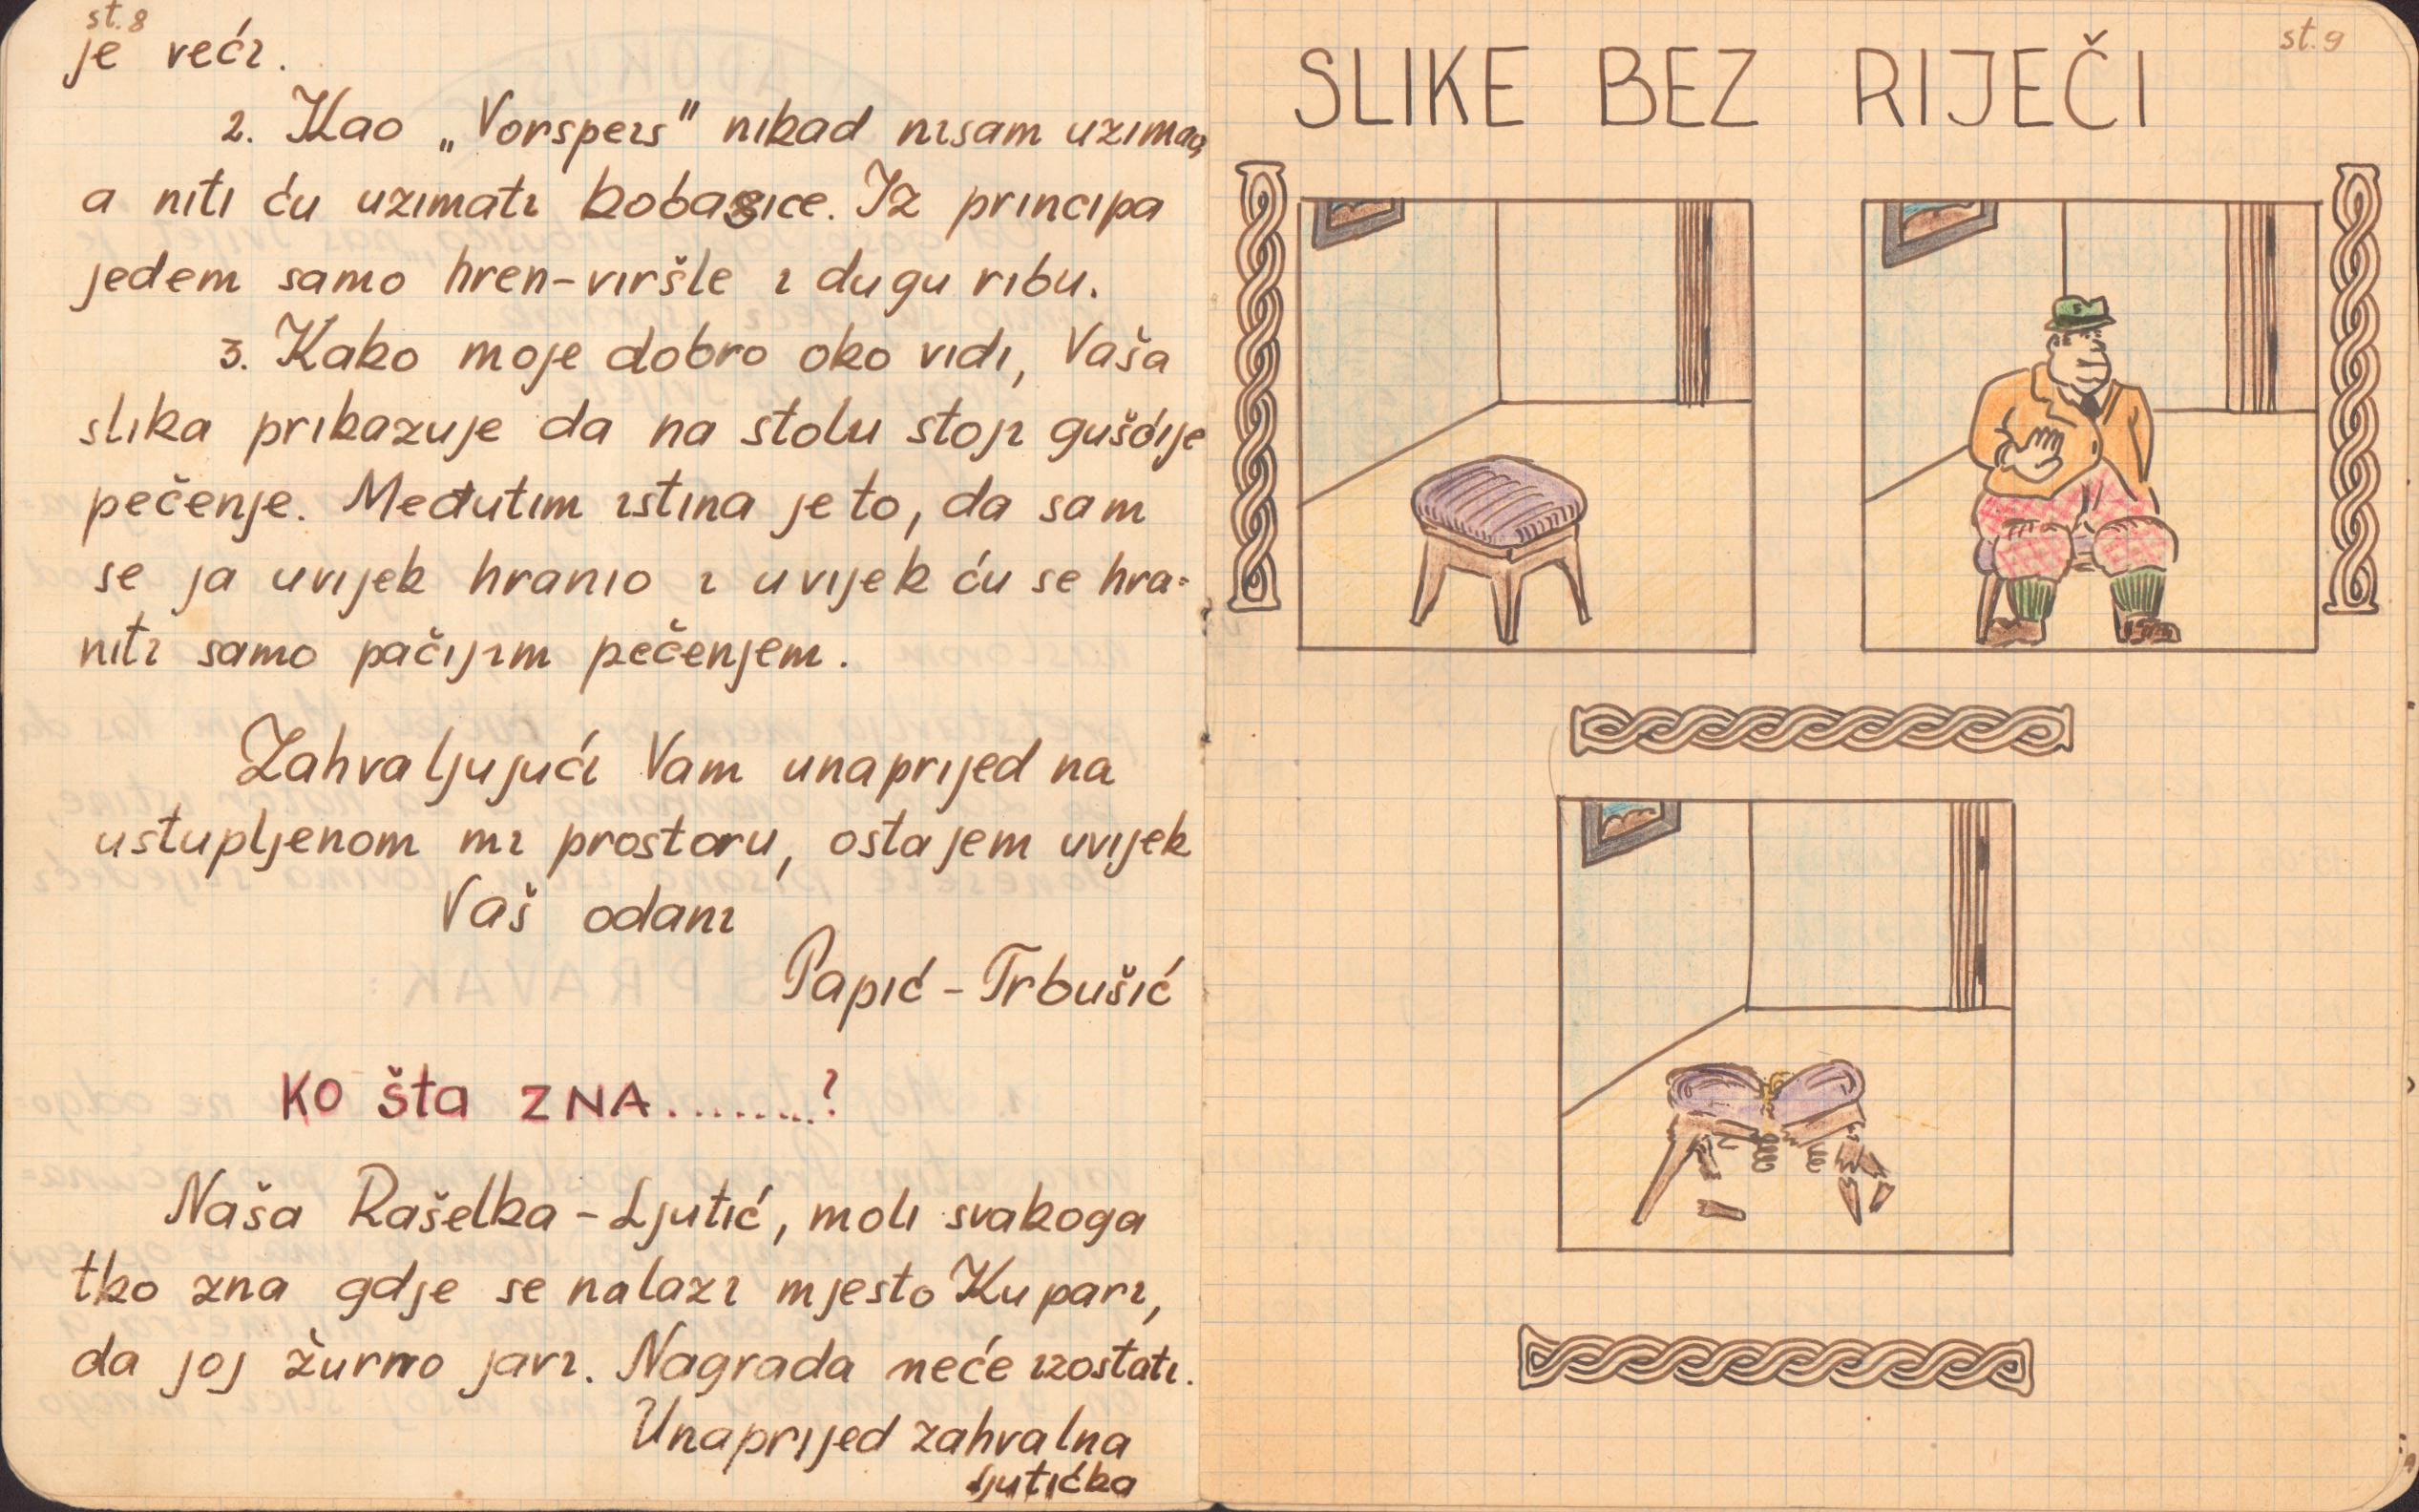 st. 8
je veći.
2. Kao „Vorspeis" nikad nisam uzimao,
a niti ću uzimati kobasice. Iz principa
jedem samo hren-viršle i dugu ribu.
3. Kako moje dobro oko vidi, Vaša
slika prikazuje da na stolu stoji gušćije
pečenje. Međutim istina je to, da sam
se ja uvijek hranio i uvijek ću se hra-
niti samo pačijim pečenjem.
Zahvaljujući Vam unaprijed na
ustupljenom mi prostoru, ostajem uvijek
Vaš odani
Papić - Trbušić
KO šta ZNA........?
Naša Rašelka - Ljutić, moli svakoga
tko zna gdje se nalazi mjesto Kupari,
da joj žurno javi. Nagrada neće izostati.
Unaprijed zahvalna
Ljutićka
st. 9
SLIKE BEZ RIJEČI